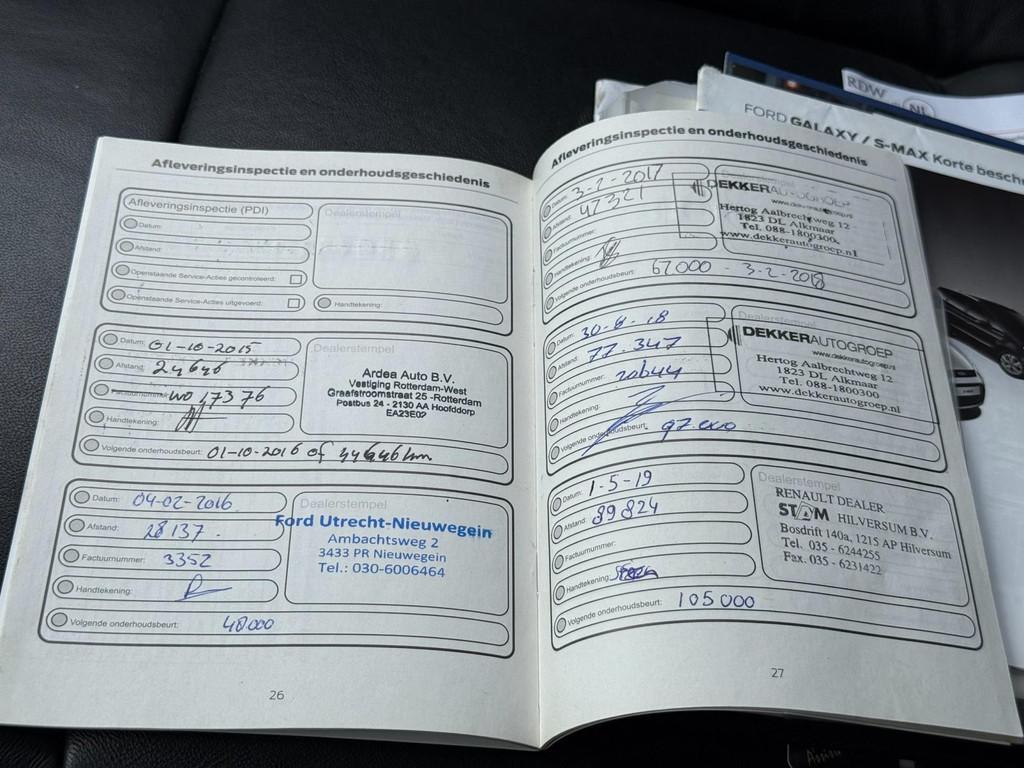 Afleveringsinspectie en onderhoudsgeschiedenis
Afleveringsinspectie (PDI)
Datum:
Afstand:
Openstaande Service-Acties gecontroleerd:
Openstaande Service-Acties uitgevoerd:
Dealerstempel
Handtekening:
Datum: 01-10-2015
Afstand: 24646
Factuurnummer: WO 17376
Handtekening:
Volgende onderhoudsbeurt: 01-10-2016 of 44646 km
Dealerstempel
Ardea Auto B.V.
Vestiging Rotterdam-West
Graafstroomstraat 25 -Rotterdam
Postbus 24 - 2130 AA Hoofddorp
EA23E07
Datum: 04-02-2016
Afstand: 28137.
Factuurnummer: 3352
Handtekening:
Volgende onderhoudsbeurt: 48000
Dealerstempel
Ford Utrecht-Nieuwegein
Ambachtsweg 2
3433 PR Nieuwegein
Tel.: 030-6006464
26
Afleveringsinspectie en onderhoudsgeschiedenis
Datum: 3-2-2017
Afstand: 47321
Factuurnummer:
Handtekening:
Volgende onderhoudsbeurt: 67000 - 3-2-2018
Dealerstempel
DEKKERAUTOGROEP
www.dekkerautogroep.nl
Hertog Aalbrechtweg 12
1823 DL Alkmaar
Tel. 088-1800300
www.dekkerautogroep.nl
Datum: 30-6-18
Afstand: 77.347
Factuurnummer:
Handtekening:
Volgende onderhoudsbeurt: 97.000
Dealerstempel
DEKKERAUTOGROEP
www.dekkerautogroep.nl
Hertog Aalbrechtweg 12
1823 DL Alkmaar
Tel. 088-1800300
www.dekkerautogroep.nl
Datum: 1-5-19
Afstand: 89824
Factuurnummer:
Handtekening:
Volgende onderhoudsbeurt: 105000
Dealerstempel
RENAULT DEALER
STAM HILVERSUM B.V.
Bosdrift 140a, 1215 AP Hilversum
Tel. 035 - 6244255
Fax. 035 - 6231422
27
RDW
NL
FORD GALAXY / S-MAX Korte besch